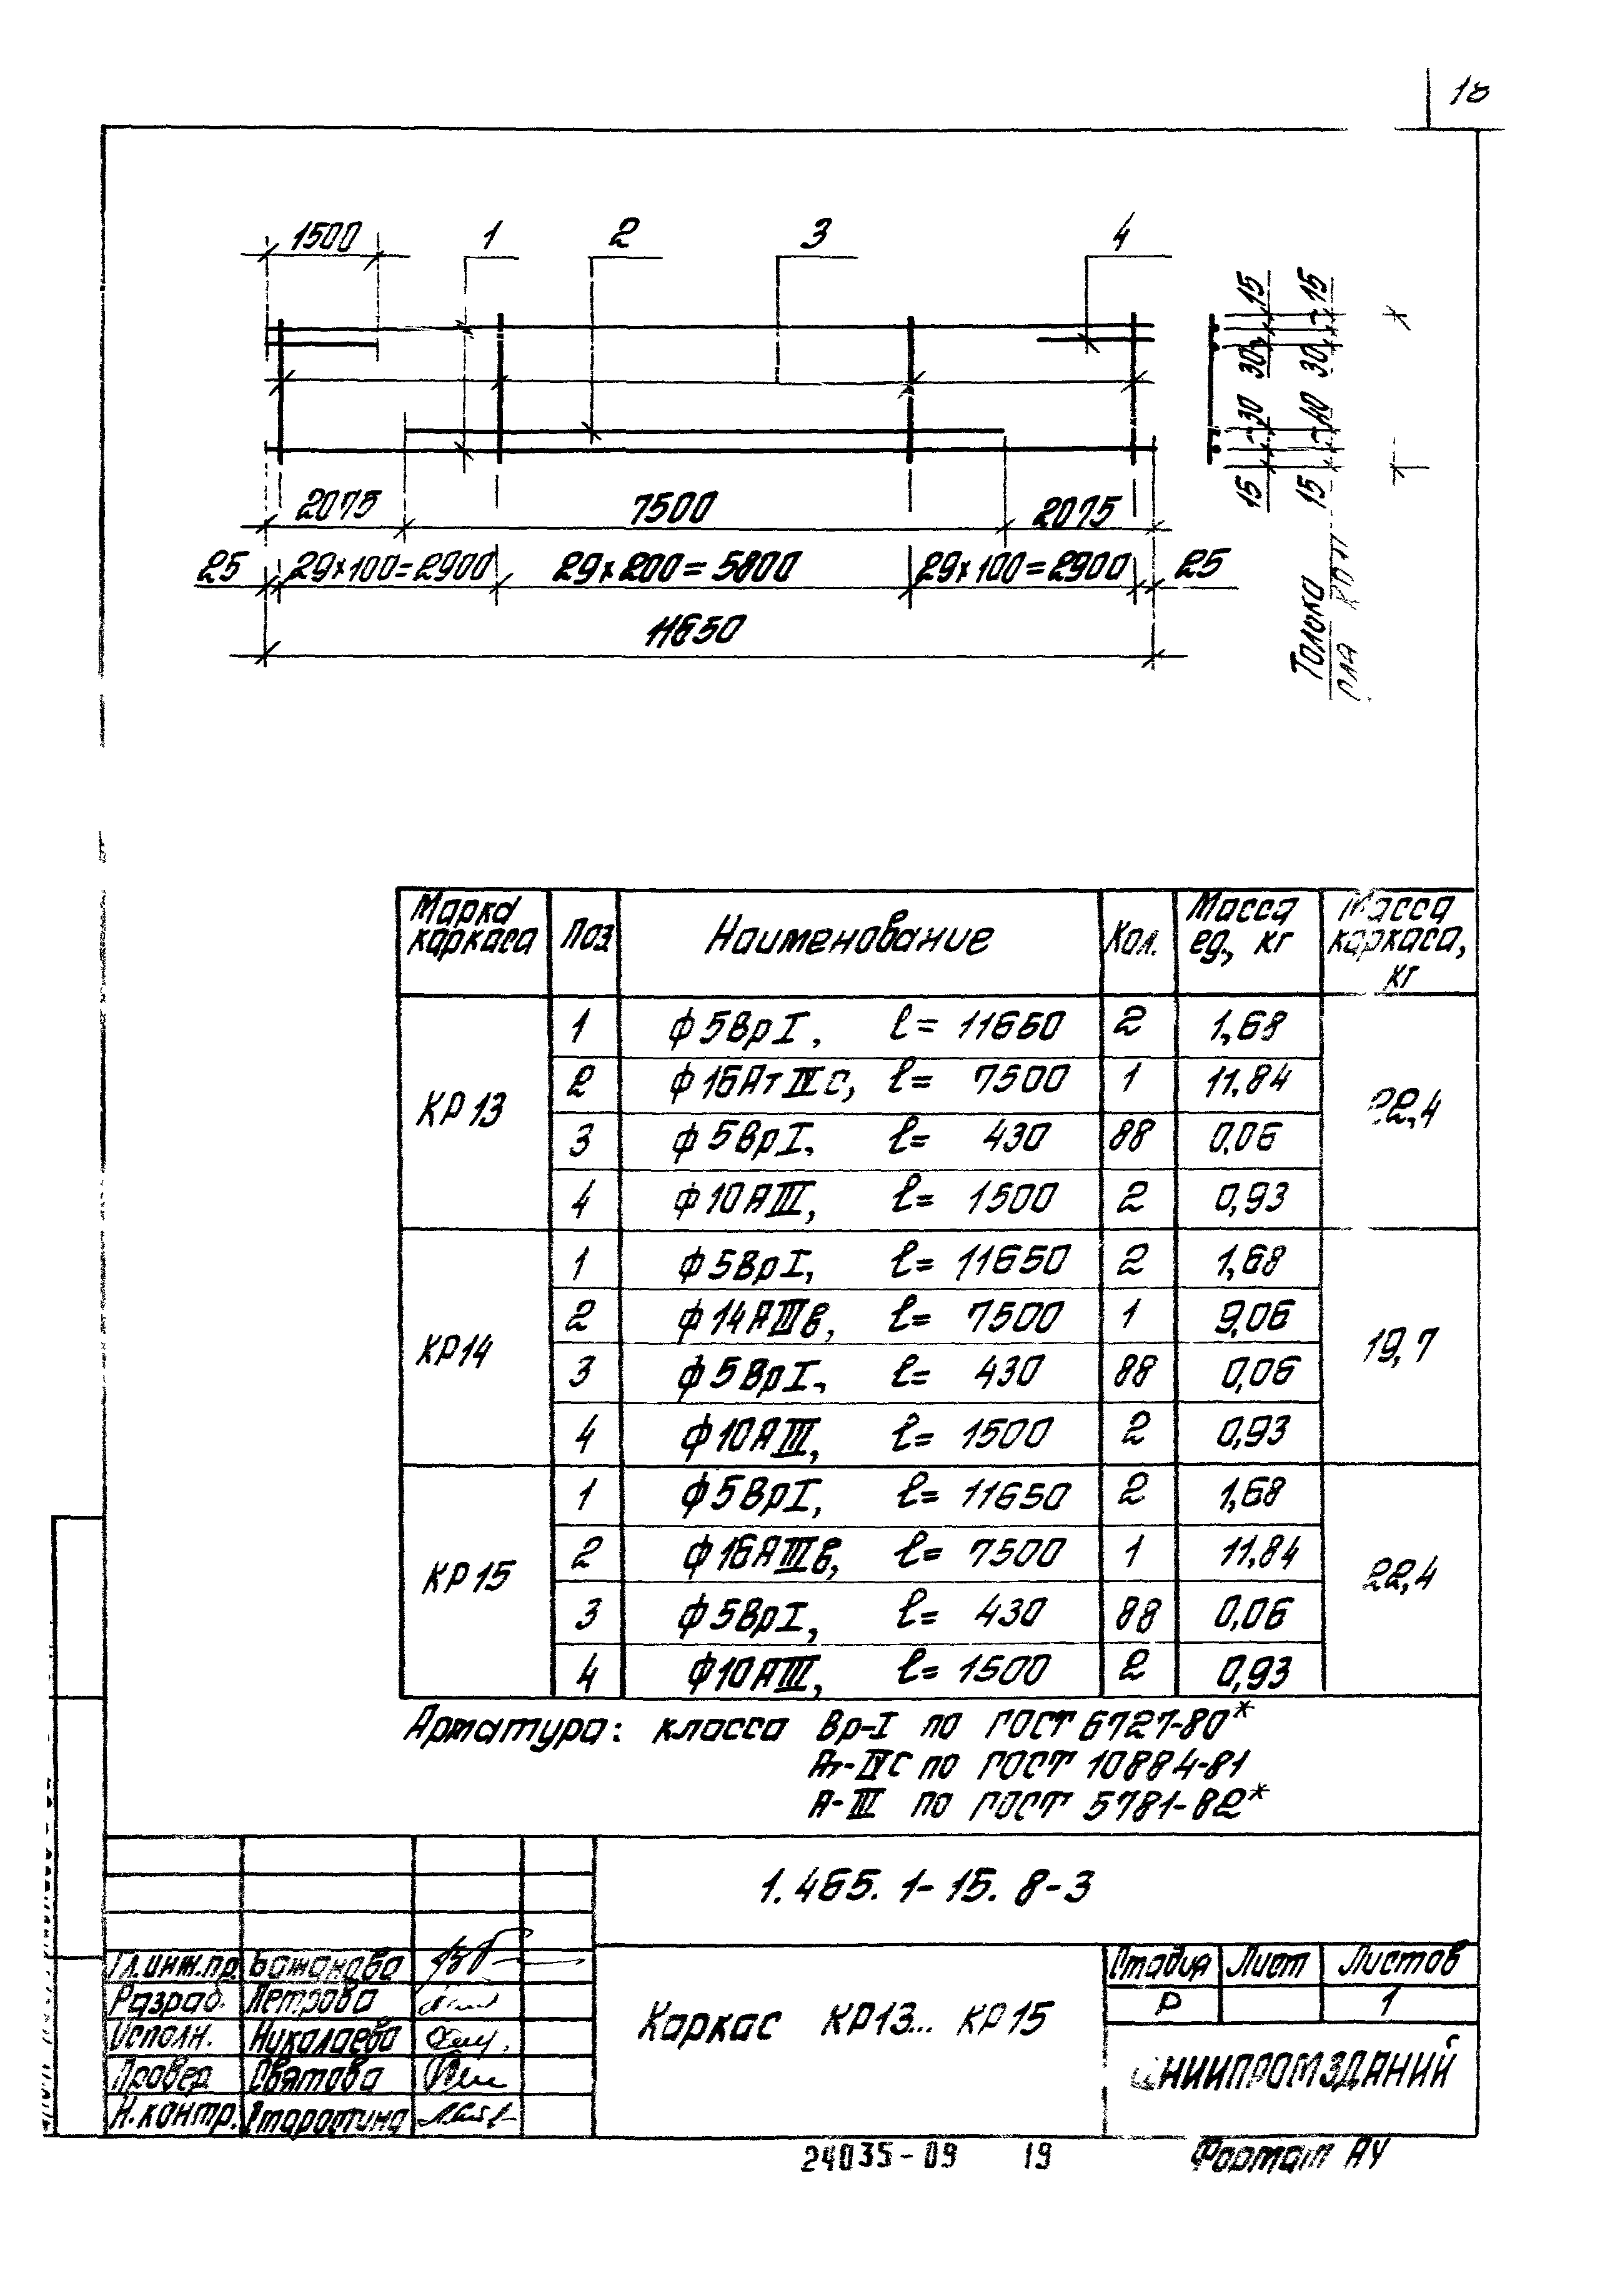 18
1500 1 2 3 4
15 15
30 30
30 40
15 15
2075 7500 2075
25 29×100=2900 29×200=5800 29×100=2900 25
11650
Только
для
Марка каркаса Поз Наименование Кол. Масса ед., кг Масса каркаса, кг
КР13 22,4
1 ф5ВрI, ℓ= 11650 2 1,68
2 ф16АтIVС, ℓ= 7500 1 11,84
3 ф5ВрI, ℓ= 430 88 0,06
4 ф10АIII, ℓ= 1500 2 0,93
КР14 19,7
1 ф5ВрI, ℓ= 11650 2 1,68
2 ф14АIIIв, ℓ= 7500 1 9,06
3 ф5ВрI, ℓ= 430 88 0,06
4 ф10АIII, ℓ= 1500 2 0,93
КР15 22,4
1 ф5ВрI, ℓ= 11650 2 1,68
2 ф16АIIIв, ℓ= 7500 1 11,84
3 ф5ВрI, ℓ= 430 88 0,06
4 ф10АIII, ℓ= 1500 2 0,93
Арматура: класса Вр-I по ГОСТ 6727-80*
Ат-IVС по ГОСТ 10884-81
А-III по ГОСТ 5781-82*
1.465.1-15.8-3
Гл.инж.пр. Бажанова
Разраб. Петрова
Исполн. Николаева
Провер Святова
Н.контр. Старостина
Каркас КР13... КР15
Стадия Лист Листов
Р 1
ЦНИИПРОМЗДАНИЙ
24035-09 19 Формат А4